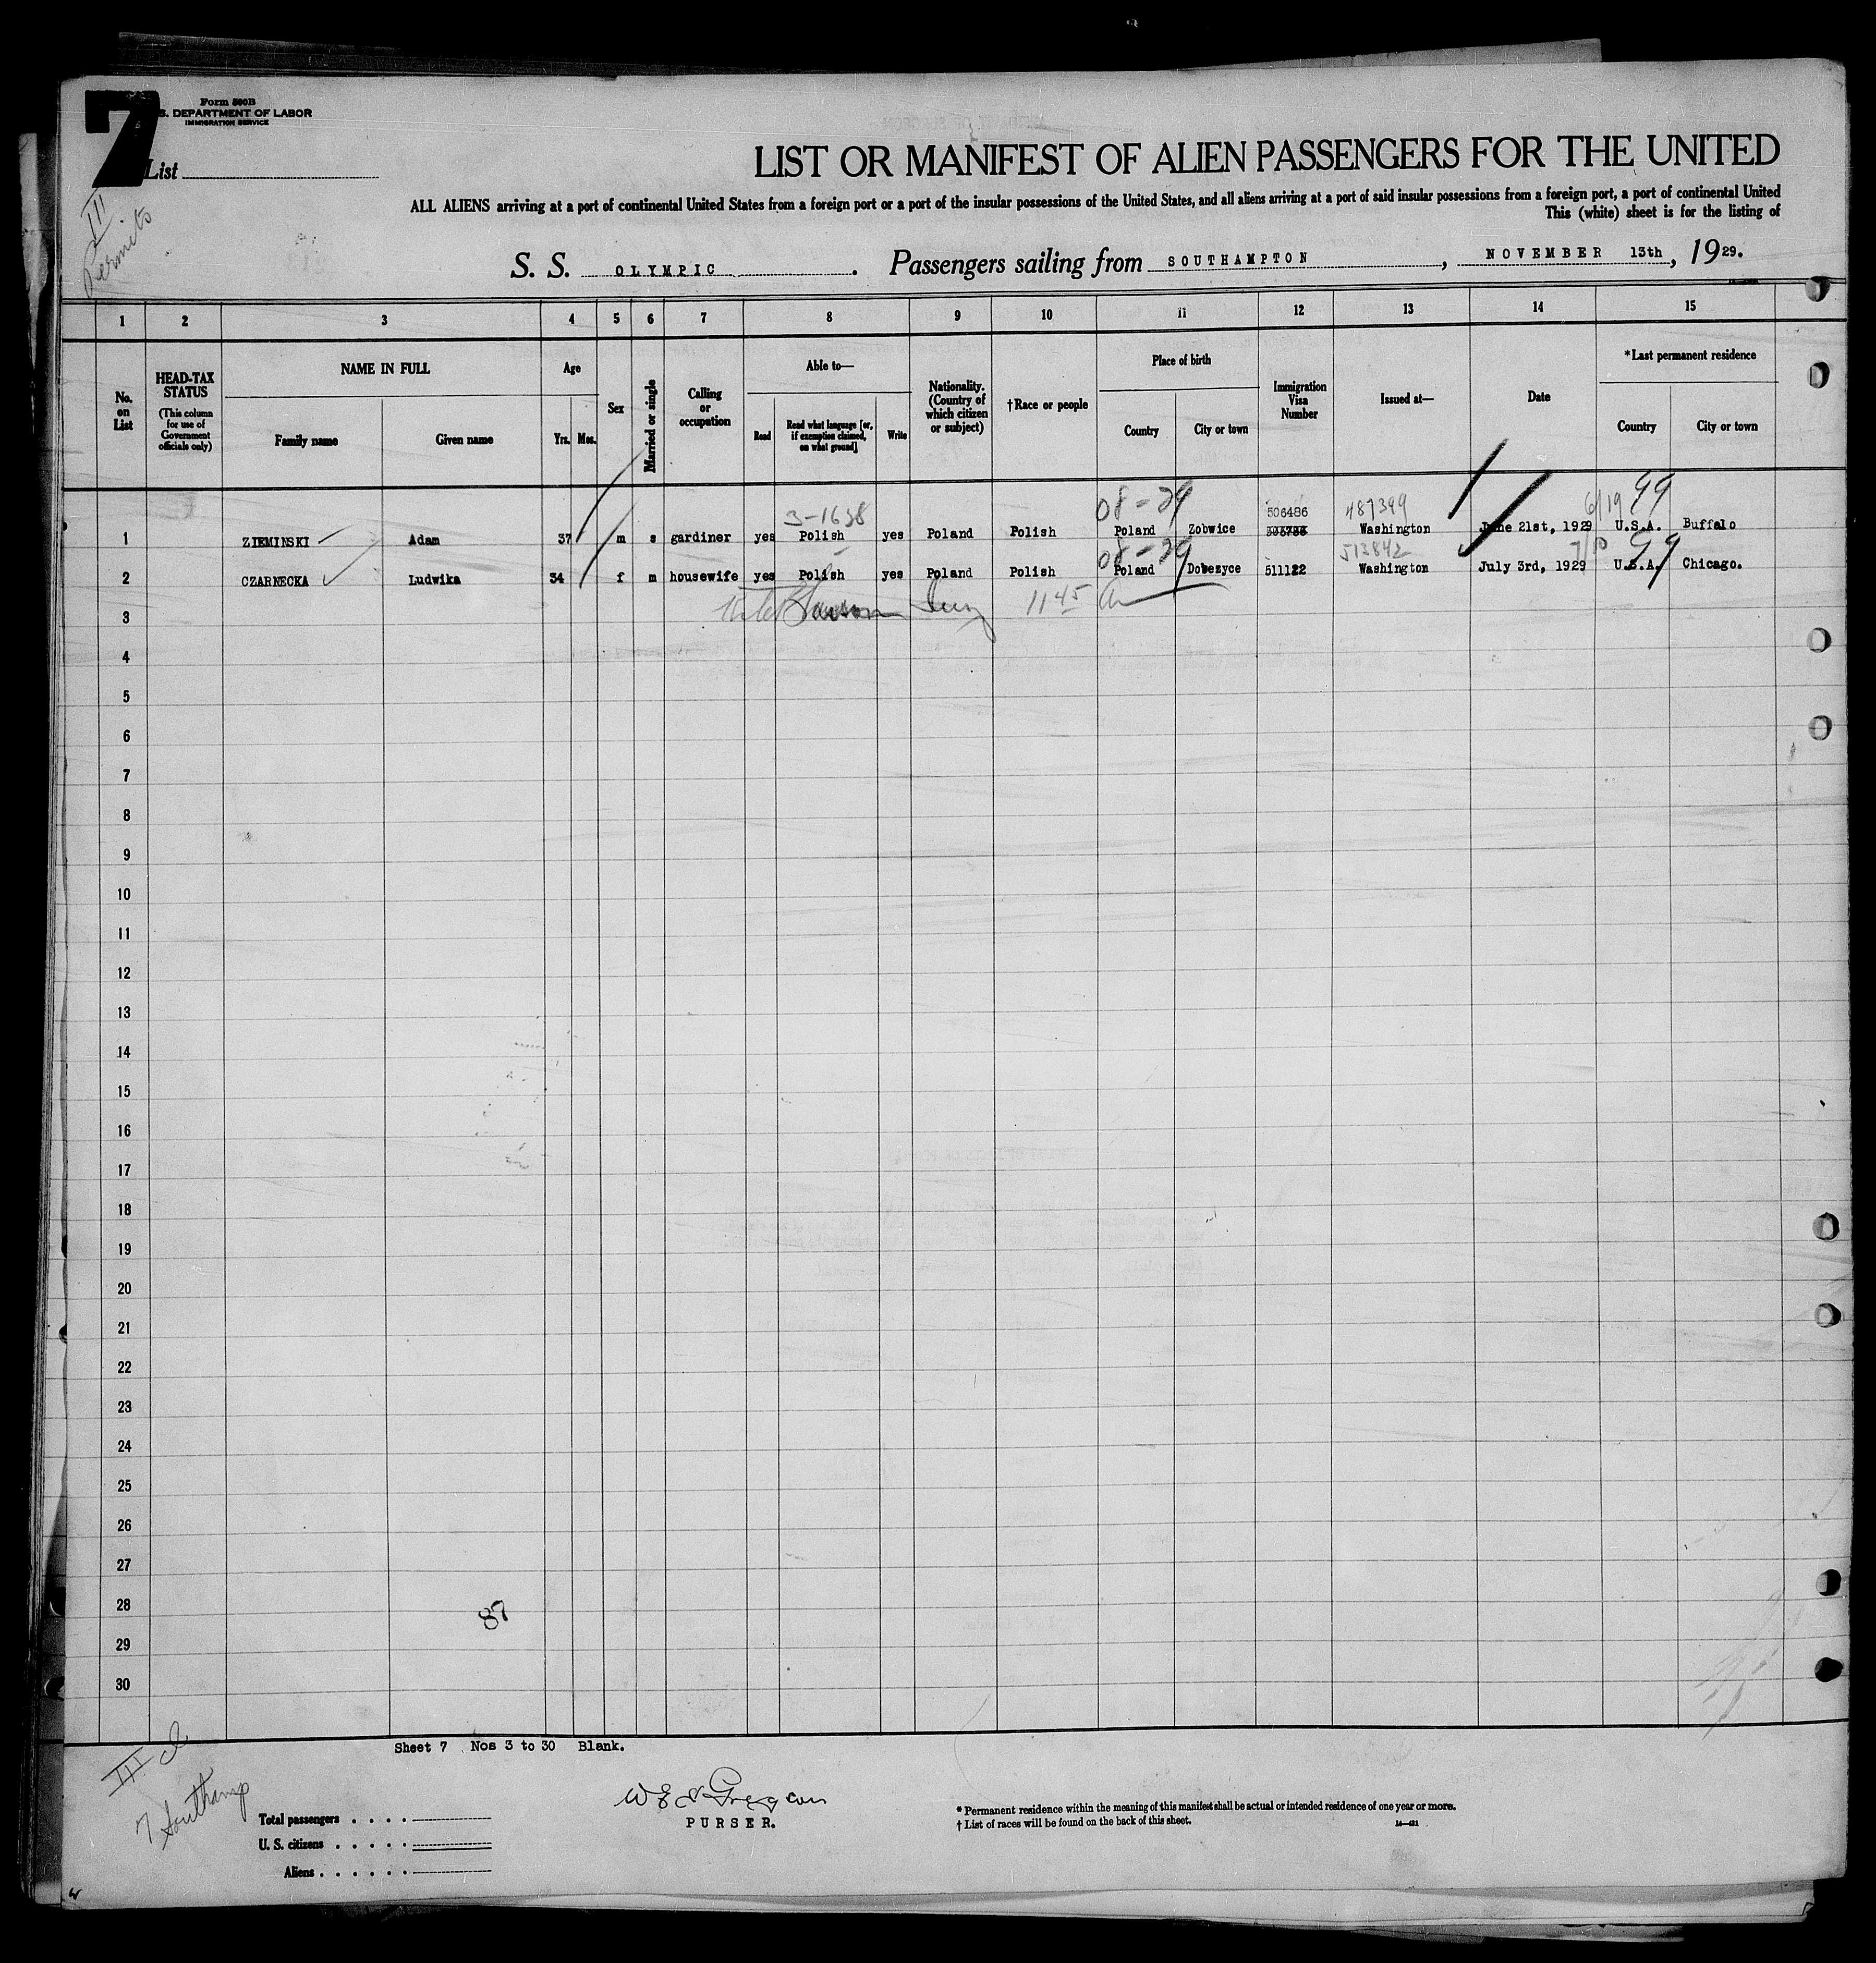 7
Form 500B
S. DEPARTMENT OF LABOR
IMMIGRATION SERVICE
List
III
Permits
LIST OR MANIFEST OF ALIEN PASSENGERS FOR THE UNITED
ALL ALIENS arriving at a port of continental United States from a foreign port or a port of the insular possessions of the United States, and all aliens arriving at a port of said insular possessions from a foreign port, a port of continental United
This (white) sheet is for the listing of
S. S. OLYMPIC. Passengers sailing from SOUTHAMPTON, NOVEMBER 13th, 1929.
1 2 3 4 5 6 7 8 9 10 11 12 13 14 15
No. on List
HEAD-TAX STATUS
(This column for use of Government officials only)
NAME IN FULL
Family name Given name
Age
Yrs. Mos.
Sex
Married or single
Calling or occupation
Able to—
Read
Read what language [or, if exemption claimed, on what ground]
Write
Nationality. (Country of which citizen or subject)
†Race or people
Place of birth
Country City or town
Immigration Visa Number
Issued at—
Date
*Last permanent residence
Country City or town
3-1638 08-29 506486 487399 6/19 99
1 ZIEMINSKI Adam 37 m s gardiner yes Polish yes Poland Polish Poland Zobwice Washington June 21st, 1929 U.S.A. Buffalo
08-29 513842 7/10 99
2 CZARNECKA Ludwika 34 f m housewife yes Polish yes Poland Polish Poland Dobezyce 511122 Washington July 3rd, 1929 U.S.A. Chicago.
3 1145
4
5
6
7
8
9
10
11
12
13
14
15
16
17
18
19
20
21
22
23
24
25
26
27
28 87
29
30
Sheet 7 Nos 3 to 30 Blank.
III cl
7 Southamp
Total passengers
U. S. citizens
Aliens
PURSER.
* Permanent residence within the meaning of this manifest shall be actual or intended residence of one year or more.
† List of races will be found on the back of this sheet.
14—431